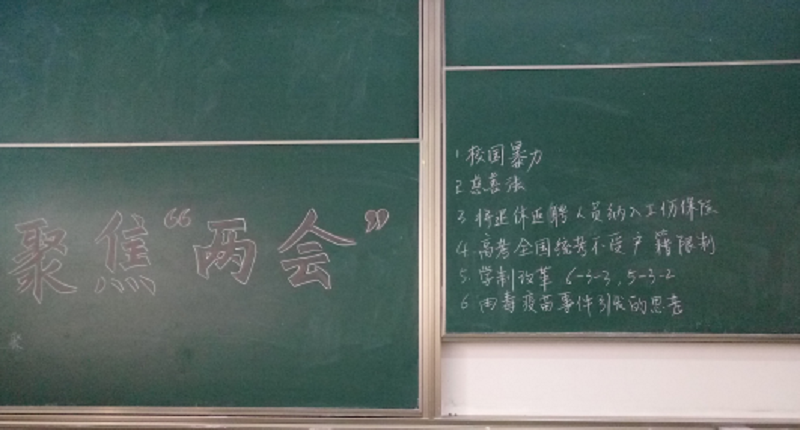 聚焦“两会”
1 校园暴力
2 慈善法
3 将退休返聘人员纳入工伤保险
4. 高考全国统考不受户籍限制
5. 学制改革 6-3-3, 5-3-2
6. 由毒疫苗事件引发的思考